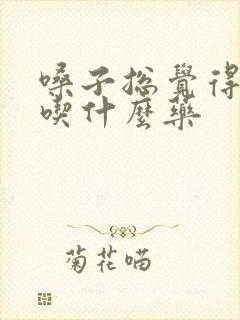 嗓子総覺得
喫什麼藥
菊花喵